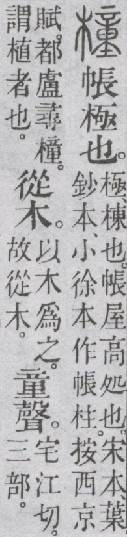 橦帳極也。極、棟也。帳屋高処也。宋本、葉
鈔本、小徐本作帳柱。按西京
賦。都盧尋橦。
謂植者也。
從木。以木爲之。
故從木。
童聲。宅江切。
三部。